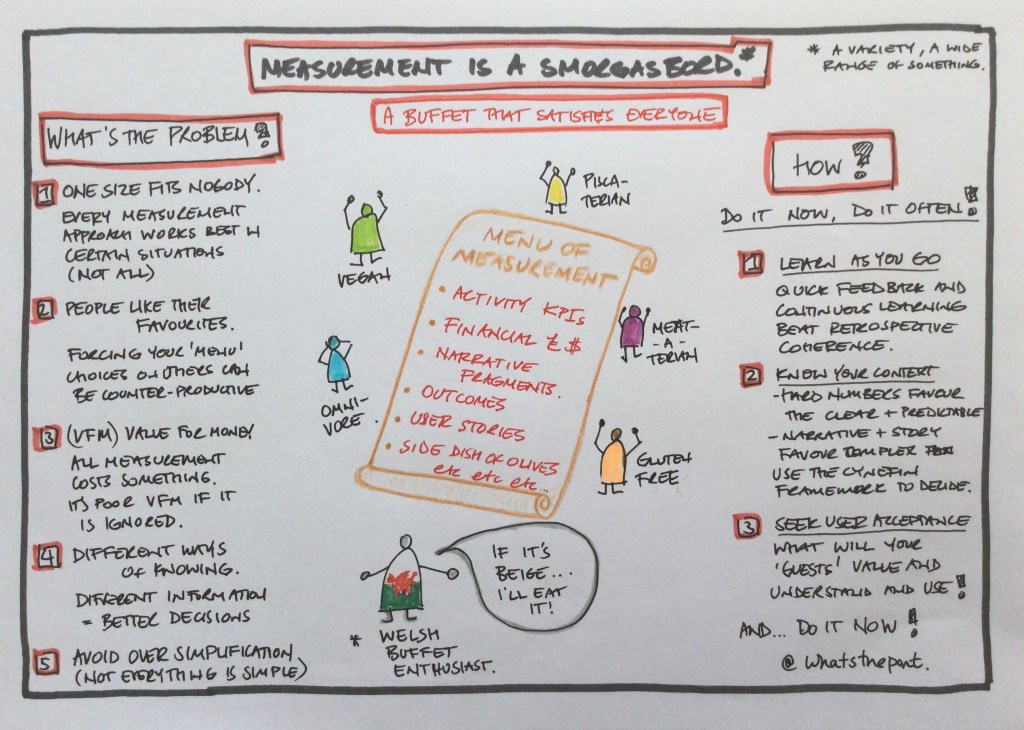 MEASUREMENT IS A SMORGASBORD.*
* A VARIETY, A WIDE
RANGE OF SOMETHING.
A BUFFET THAT SATISFIES EVERYONE
WHAT'S THE PROBLEM?
1 ONE SIZE FITS NOBODY.
EVERY MEASUREMENT
APPROACH WORKS BEST IN
CERTAIN SITUATIONS
(NOT ALL)
2 PEOPLE LIKE THEIR
FAVOURITES.
FORCING YOUR 'MENU'
CHOICES ON OTHERS CAN
BE COUNTER-PRODUCTIVE
3 (VFM) VALUE FOR MONEY
ALL MEASUREMENT
COSTS SOMETHING.
IT'S POOR VFM IF IT
IS IGNORED.
4 DIFFERENT WAYS
OF KNOWING.
DIFFERENT INFORMATION
= BETTER DECISIONS
5 AVOID OVER SIMPLIFICATION
(NOT EVERYTHING IS SIMPLE)
VEGAN
PISCA-
TERIAN
OMNI-
VORE.
MEAT-
-A-
TERIAN
GLUTEN
FREE
MENU OF
MEASUREMENT
• ACTIVITY KPIs
• FINANCIAL £ $
• NARRATIVE
FRAGMENTS.
• OUTCOMES
• USER STORIES
• SIDE DISH OF OLIVES
etc etc etc...
IF IT'S
BEIGE...
I'LL EAT
IT!
* WELSH
BUFFET
ENTHUSIAST.
HOW?
DO IT NOW, DO IT OFTEN!
1 LEARN AS YOU GO
QUICK FEEDBACK AND
CONTINUOUS LEARNING
BEAT RETROSPECTIVE
COHERENCE.
2 KNOW YOUR CONTEXT
- HARD NUMBERS FAVOUR
THE CLEAR + PREDICTABLE
- NARRATIVE + STORY
FAVOUR
USE THE CYNEFIN
FRAMEWORK TO DECIDE.
3 SEEK USER ACCEPTANCE
WHAT WILL YOUR
'GUESTS' VALUE AND
UNDERSTAND AND USE!
AND... DO IT NOW!
@whatsthepont.